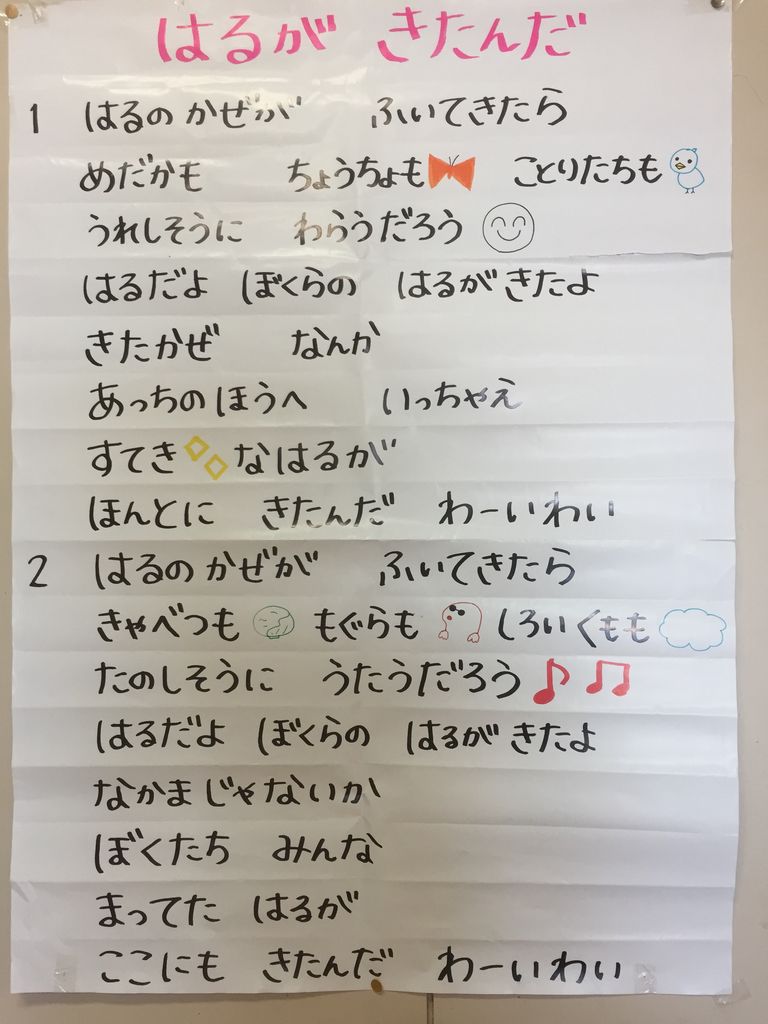 はるが きたんだ
1 はるの かぜが ふいてきたら
めだかも ちょうちょも ことりたちも
うれしそうに わらうだろう
はるだよ ぼくらの はるが きたよ
きたかぜ なんか
あっちの ほうへ いっちゃえ
すてきな はるが
ほんとに きたんだ わーいわい
2 はるの かぜが ふいてきたら
きゃべつも もぐらも しろいくもも
たのしそうに うたうだろう
はるだよ ぼくらの はるが きたよ
なかま じゃないか
ぼくたち みんな
まってた はるが
ここにも きたんだ わーいわい